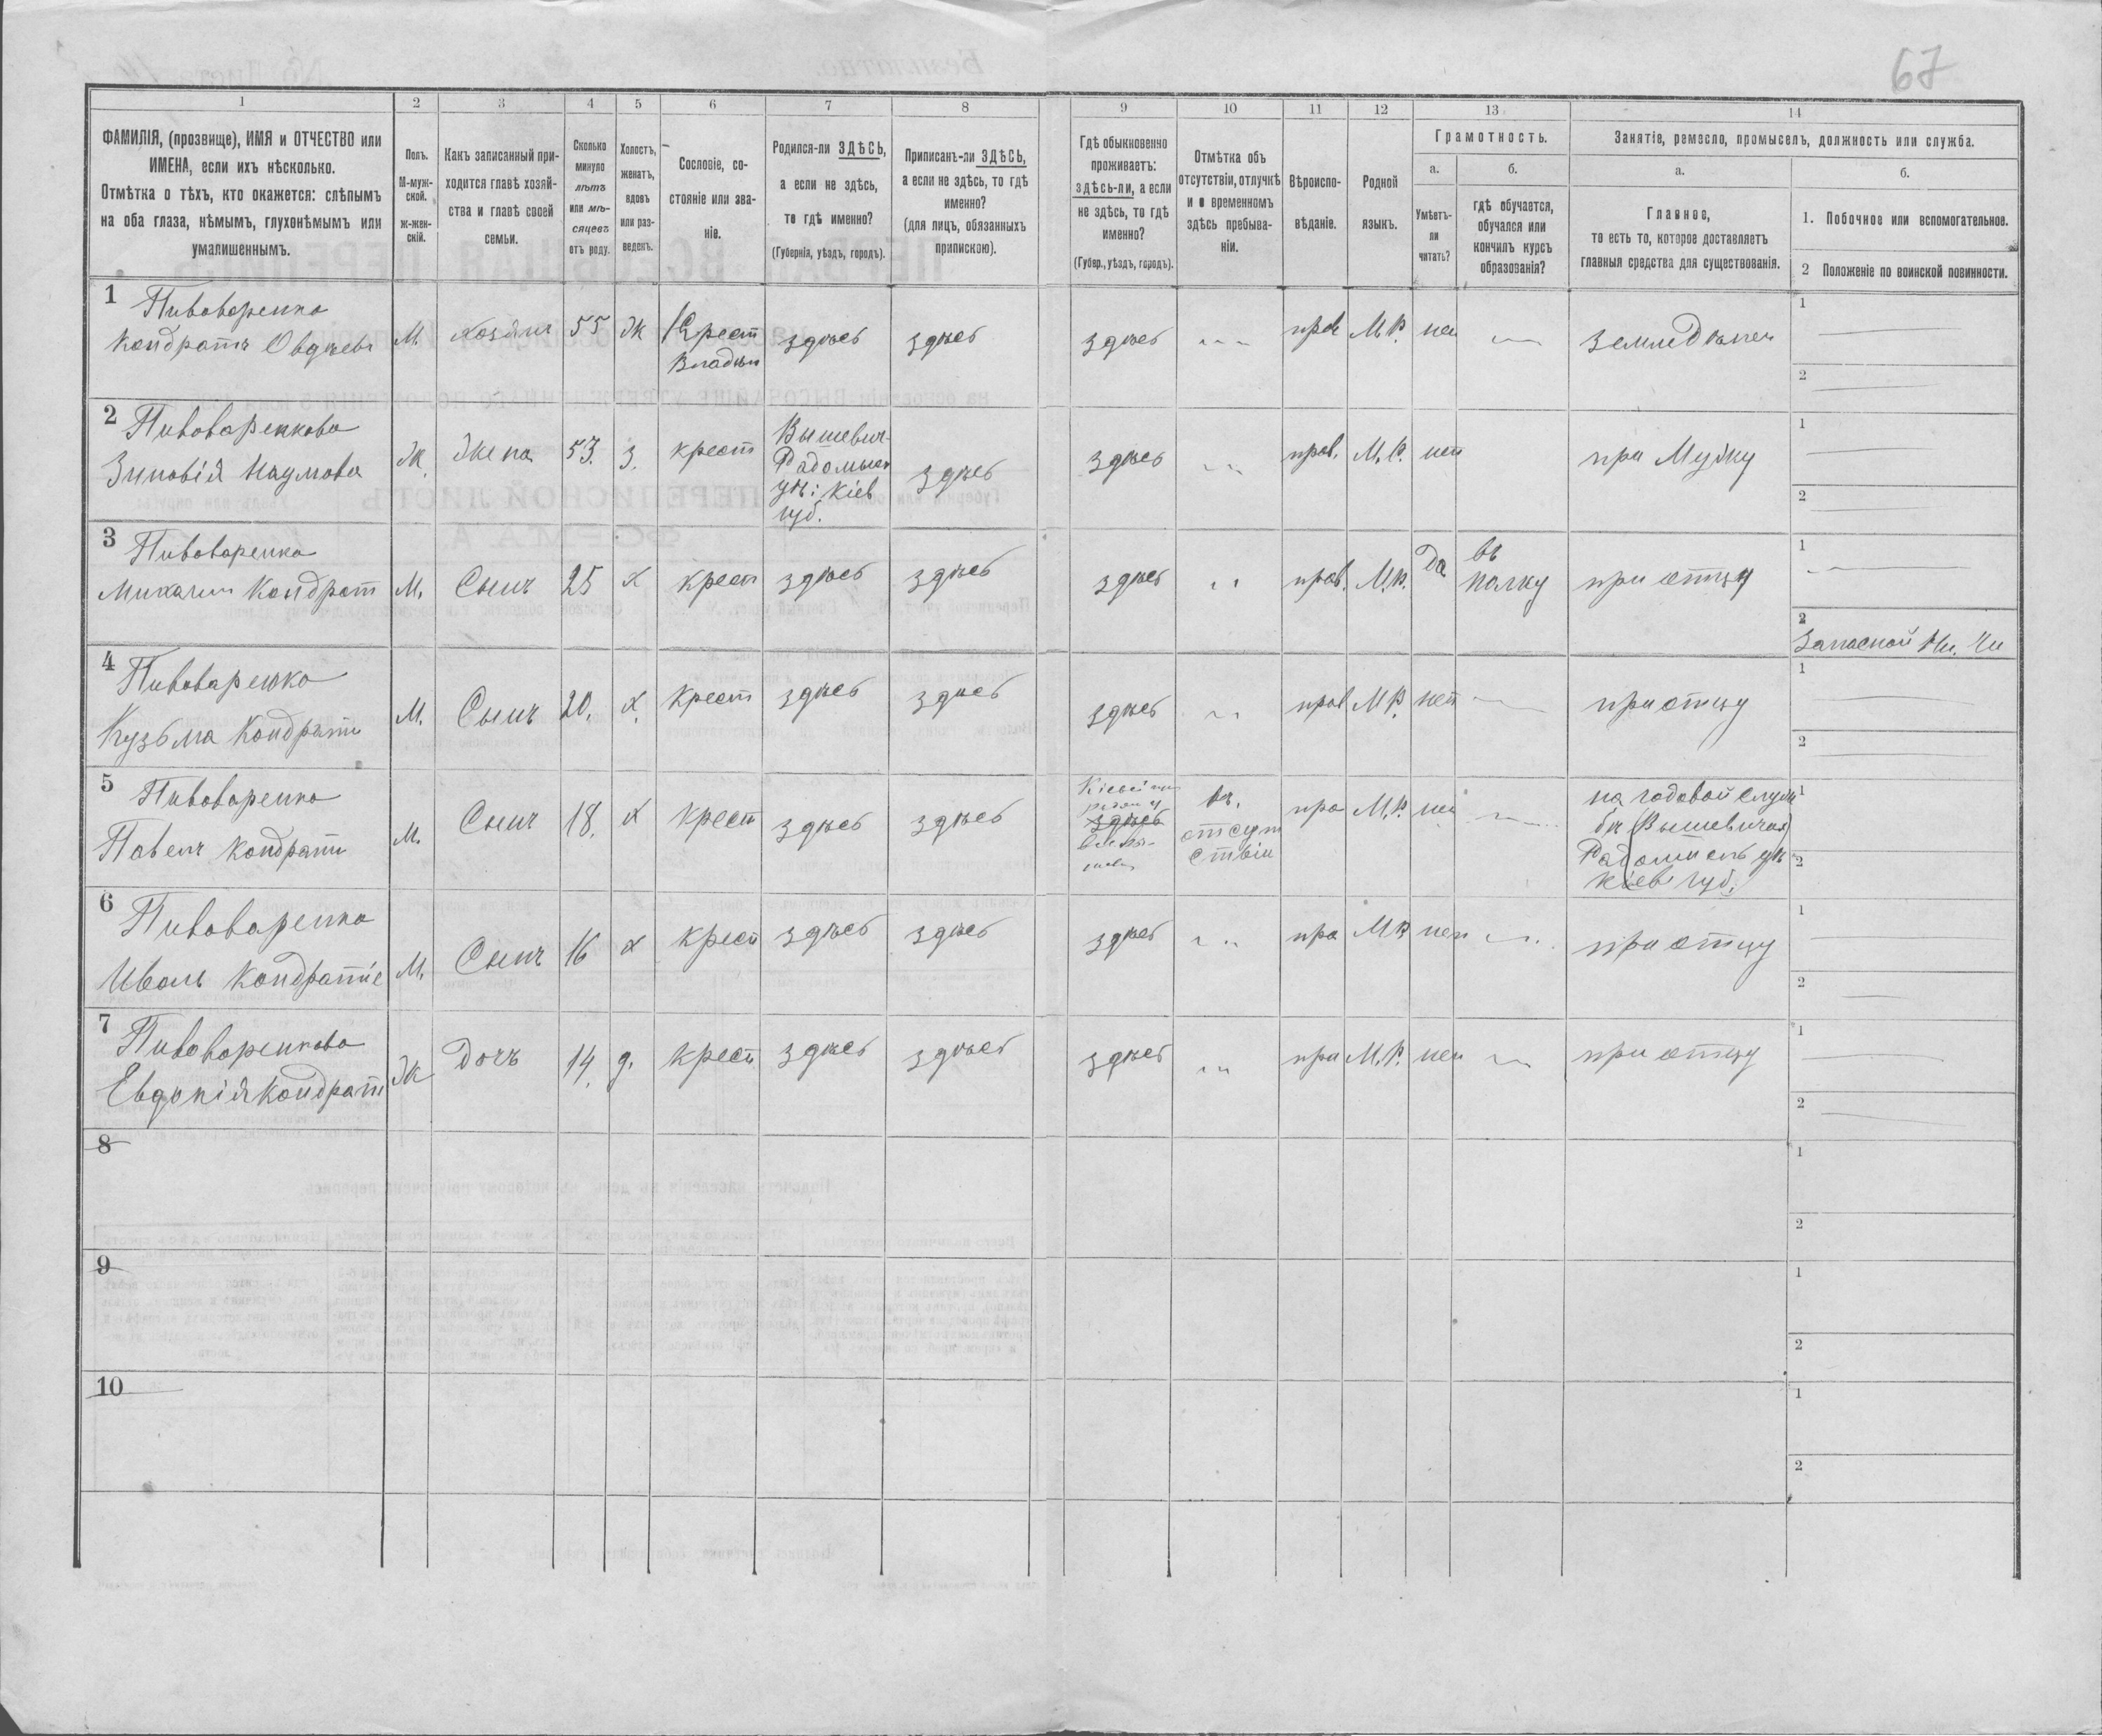 67
1 2 3 4 5 6 7 8 9 10 11 12 13 14
ФАМИЛІЯ, (прозвище), ИМЯ и ОТЧЕСТВО или
ИМЕНА, если ихъ нѣсколько.
Отмѣтка о тѣхъ, кто окажется: слѣпымъ
на оба глаза, нѣмымъ, глухонѣмымъ или
умалишеннымъ.
Полъ.
М-муж-
ской.
Ж-жен-
скій.
Какъ записанный при-
ходится главѣ хозяй-
ства и главѣ своей
семьи.
Сколько
минуло
лѣтъ
или мѣ-
сяцевъ
отъ роду.
Холостъ,
женатъ,
вдовъ
или раз-
веденъ.
Сословіе, со-
стояніе или зва-
ніе.
Родился-ли ЗДѢСЬ,
а если не здѣсь,
то гдѣ именно?
(Губернія, уѣздъ, городъ).
Приписанъ-ли ЗДѢСЬ,
а если не здѣсь, то гдѣ
именно?
(для лицъ, обязанныхъ
припискою).
Гдѣ обыкновенно
проживаетъ:
здѣсь-ли, а если
не здѣсь, то гдѣ
именно?
(Губер., уѣздъ, городъ).
Отмѣтка объ
отсутствіи, отлучкѣ
и о временномъ
здѣсь пребыва-
ніи.
Вѣроиспо-
вѣданіе.
Родной
языкъ.
Грамотность.
а.
Умѣетъ-
ли
читать?
б.
гдѣ обучается,
обучался или
кончилъ курсъ
образованія?
Занятіе, ремесло, промыселъ, должность или служба.
а.
Главное,
то есть то, которое доставляетъ
главныя средства для существованія.
б.
1. Побочное или вспомогательное.
2 Положеніе по воинской повинности.
1 Пивоваренко
Кондратъ Овдѣев
М. Хозяинъ 55 Ж Крест
Владѣл
здѣсь здѣсь здѣсь прав М.Р. нет Земледѣлец
1
2
2 Пивоваренкова
Зиновія Наумова
Ж. Жена 53. З. крест
Вышевич-
Радомысл
уѣ: Кіев
губ.
здѣсь здѣсь прав. М.Р. нет при Мужу
1
2
3 Пивоваренко
Михаил Кондрат
М. Сынъ 25 Х крест здѣсь здѣсь здѣсь прав. М.Р. Да
въ
полку
при отцу
1
2
Запасной Ни. Чи
4 Пивоваренко
Кузьма Кондрати
М. Сынъ 20. Х. Крест здѣсь здѣсь здѣсь прав М.Р. нет при отцу
1
2
5 Пивоваренко
Павелъ Кондрати
М. Сынъ 18. Х Крест здѣсь здѣсь
здѣсь
въ.
отсут
ствіи
пра М.Р. нет
на годовой служ
бѣ (Вышевичах)
Радомысль уѣ
Кіев губ.
1
2
6 Пивоваренко
Иванъ Кондратіе
М. Сынъ 16 Х Крест здѣсь здѣсь здѣсь пра М.Р. нет при отцу
1
2
7 Пивоваренкова
Евдокія Кондрат
Ж Дочь 14. д. Крест здѣсь здѣсь здѣсь пра М.Р. нет при отцу
1
2
8
1
2
9
1
2
10
1
2